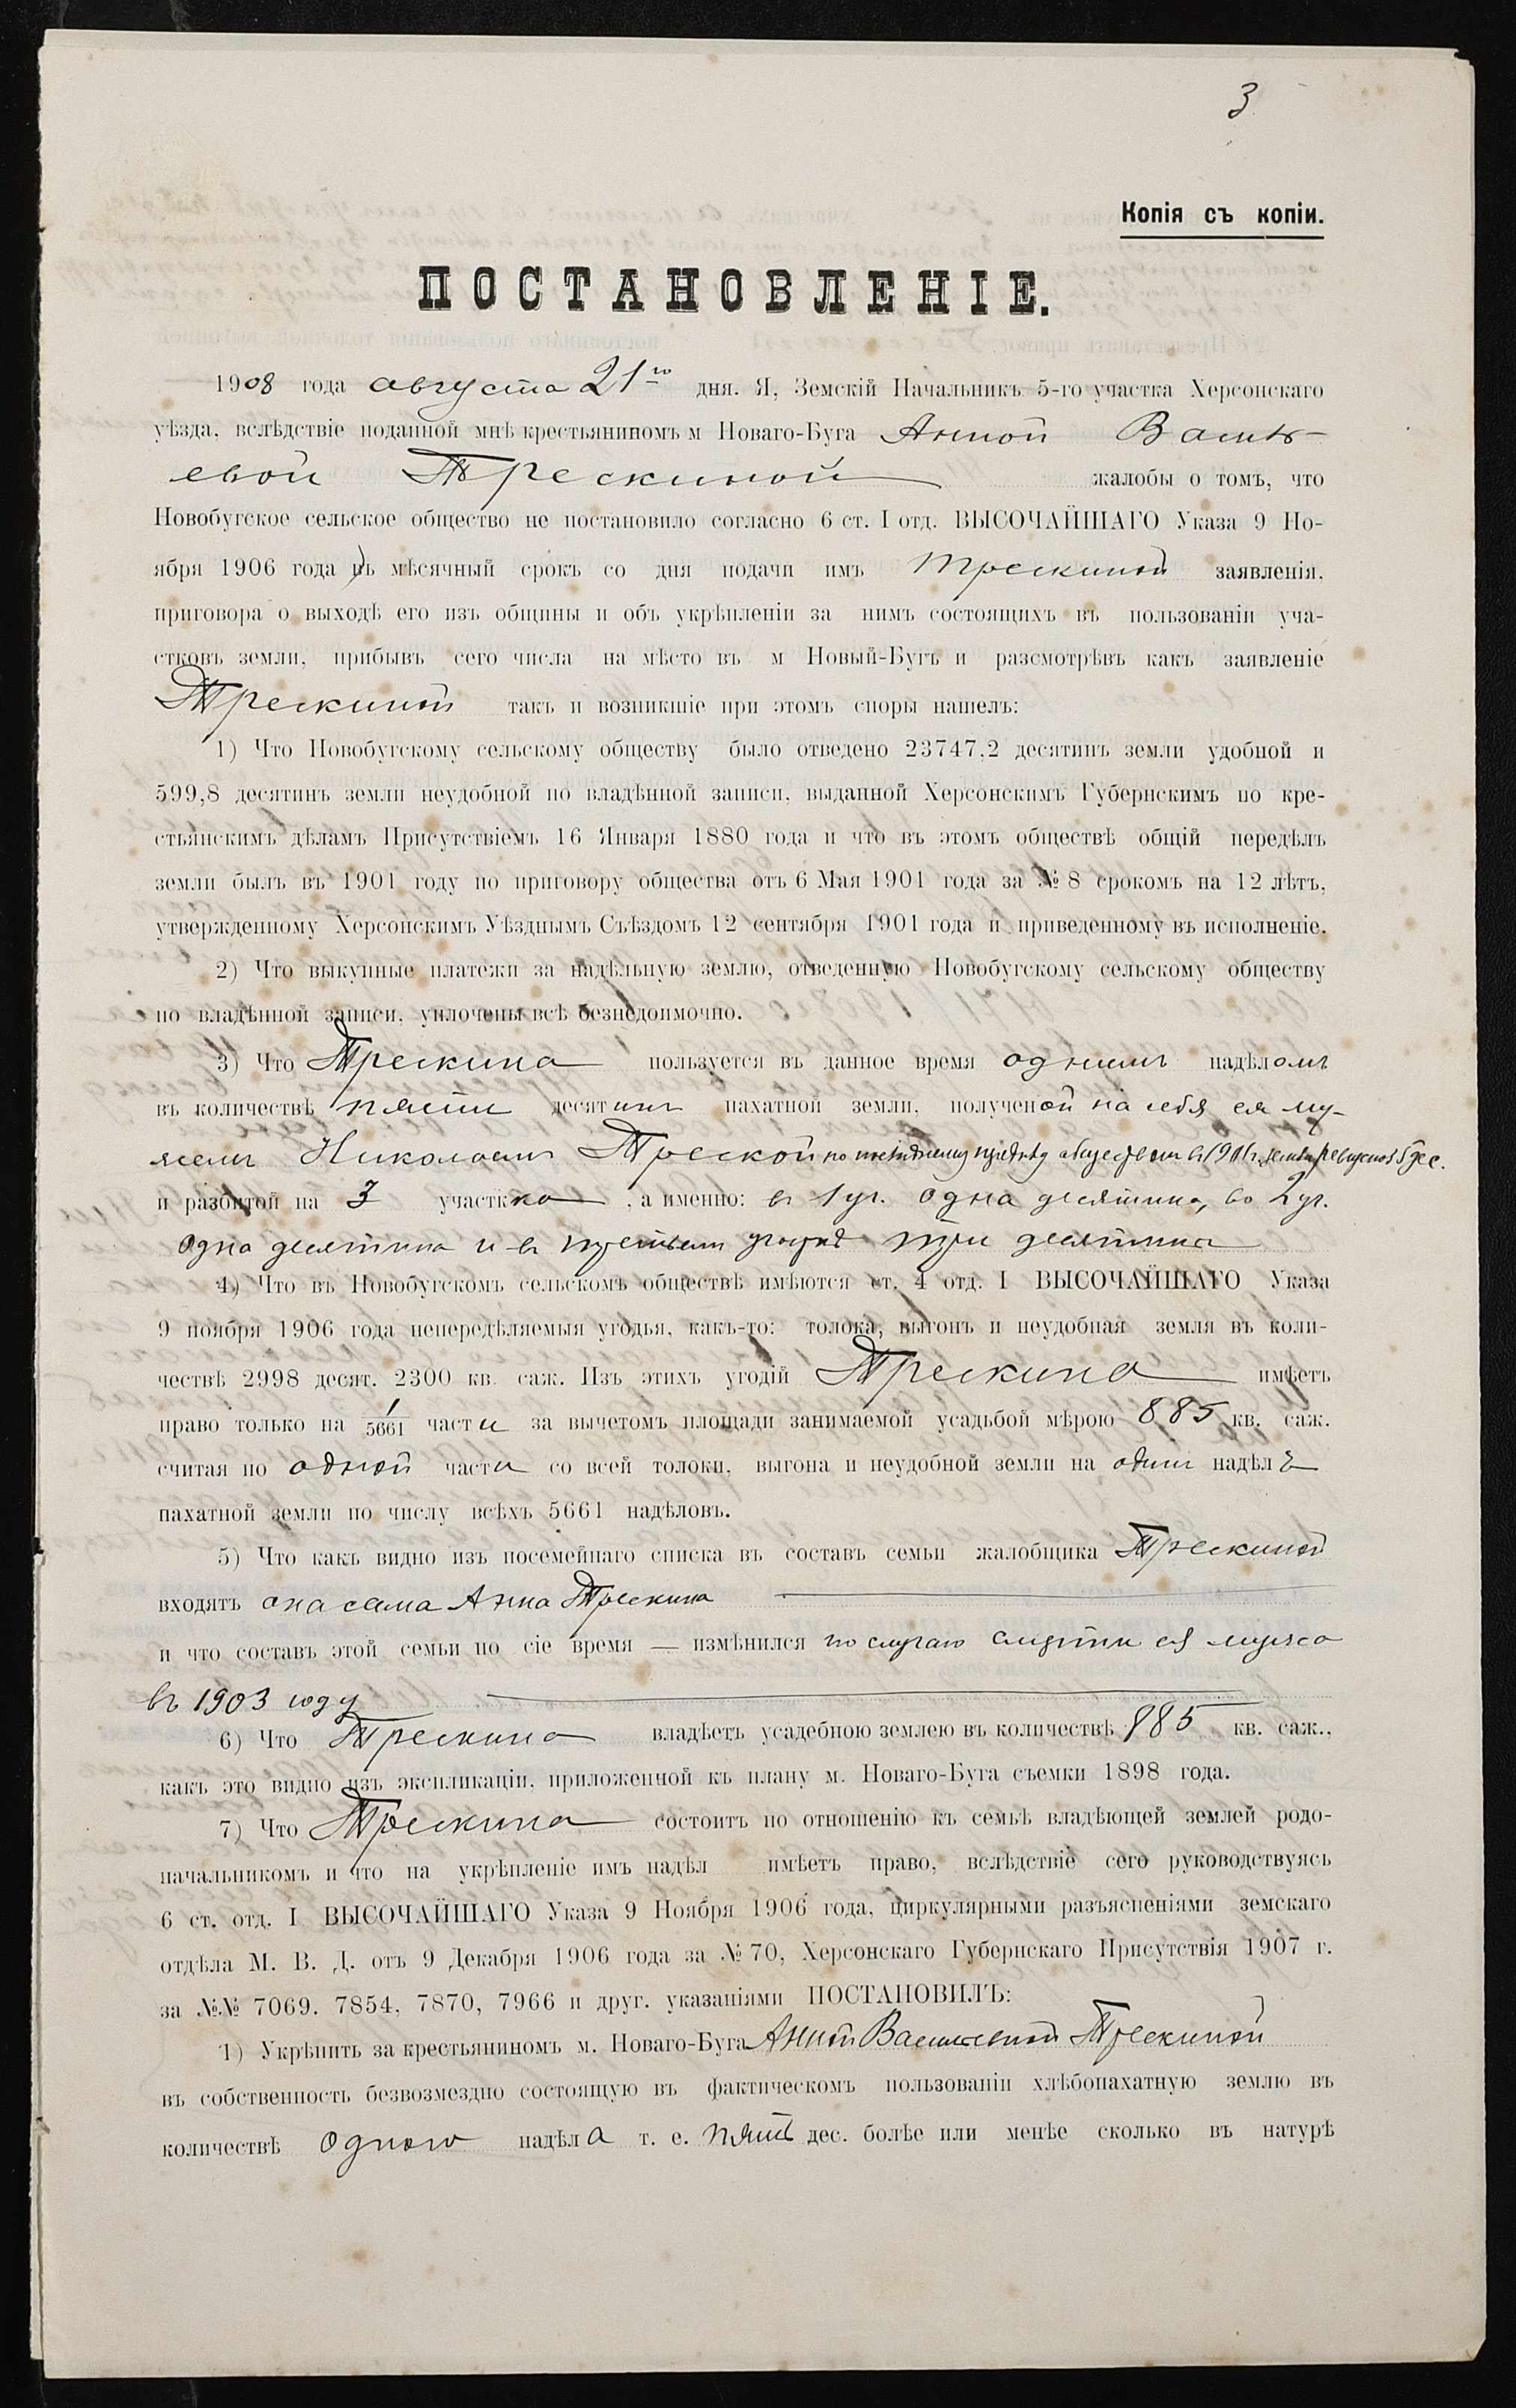 3
Копія съ копіи.
ПОСТАНОВЛЕНІЕ.
1908 года августа 21го дня. Я, Земскій Начальникъ 5-го участка Херсонскаго
уѣзда, вслѣдствіе поданной мнѣ крестьяниномъ м Новаго-Буга Анной Василь-
евой Трескиной жалобы о томъ, что
Новобугское сельское общество не постановило согласно 6 ст. I отд. ВЫСОЧАЙШАГО Указа 9 Но-
ября 1906 года въ мѣсячный срокъ со дня подачи имъ Трескиной заявленія,
приговора о выходѣ его изъ общины и объ укрѣпленіи за нимъ состоящихъ въ пользованіи уча-
стковъ земли, прибывъ сего числа на мѣсто въ м Новый-Бугъ и разсмотрѣвъ какъ заявленіе
Трескиной такъ и возникшіе при этомъ споры нашелъ:
1) Что Новобугскому сельскому обществу было отведено 23747,2 десятинъ земли удобной и
599,8 десятинъ земли неудобной по владѣнной записи, выданной Херсонскимъ Губернскимъ по кре-
стьянскимъ дѣламъ Присутствіемъ 16 Января 1880 года и что въ этомъ обществѣ общій передѣлъ
земли былъ въ 1901 году по приговору общества отъ 6 Мая 1901 года за № 8 срокомъ на 12 лѣтъ,
утвержденному Херсонскимъ Уѣзднымъ Съѣздомъ 12 сентября 1901 года и приведенному въ исполненіе.
2) Что выкупные платежи за надѣльную землю, отведенную Новобугскому сельскому обществу
по владѣнной записи, уплочены всѣ безнедоимочно.
3) Что Трескина пользуется въ данное время однимъ надѣломъ
въ количествѣ пяти десятинъ пахатной земли, полученой на себя ея му-
жемъ Николаемъ Треской по послѣднему передѣлу въ 1901 г.
и разбитой на 3 участкка, а именно: въ 1 уч. одна десятина, во 2 уч.
одна десятина и въ третьем участкѣ три десятины
4) Что въ Новобугскомъ сельскомъ обществѣ имѣются ст. 4 отд. I ВЫСОЧАЙШАГО Указа
9 ноября 1906 года непередѣляемыя угодья, какъ-то: толока, выгонъ и неудобная земля въ коли-
чествѣ 2998 десят. 2300 кв. саж. Изъ этихъ угодій Трескина имѣетъ
право только на 1/5661 части за вычетомъ площади занимаемой усадьбой мѣрою 885 кв. саж.
считая по одной части со всей толоки, выгона и неудобной земли на одинъ надѣлъ
пахатной земли по числу всѣхъ 5661 надѣловъ.
5) Что какъ видно изъ посемейнаго списка въ составъ семьи жалобщика Трескиной
входятъ она сама Анна Трескина
и что составъ этой семьи по сіе время — измѣнился по случаю смерти ея мужа
въ 1903 году
6) Что Трескина владѣетъ усадебною землею въ количествѣ 885 кв. саж.,
какъ это видно изъ экспликаціи, приложенной къ плану м. Новаго-Буга съемки 1898 года.
7) Что Трескина состоитъ по отношенію къ семьѣ владѣющей землей родо-
начальникомъ и что на укрѣпленіе имъ надѣл имѣетъ право, вслѣдствіе сего руководствуясь
6 ст. отд. I ВЫСОЧАЙШАГО Указа 9 Ноября 1906 года, циркулярными разъясненіями земскаго
отдѣла М. В. Д. отъ 9 Декабря 1906 года за № 70, Херсонскаго Губернскаго Присутствія 1907 г.
за №№ 7069. 7854, 7870, 7966 и друг. указаніями ПОСТАНОВИЛЪ:
1) Укрѣпить за крестьяниномъ м. Новаго-Буга Анной Васильевной Трескиной
въ собственность безвозмездно состоящую въ фактическомъ пользованіи хлѣбопахатную землю въ
количествѣ одного надѣла т. е. пять дес. болѣе или менѣе сколько въ натурѣ